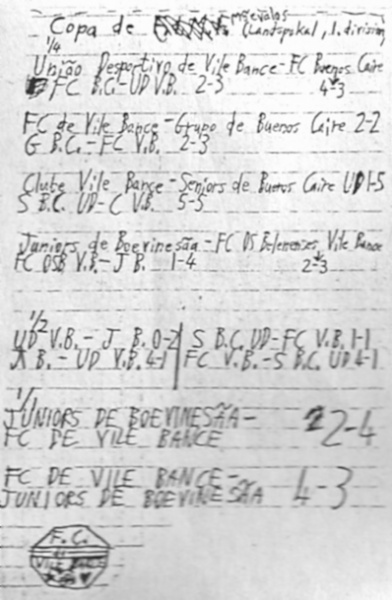 Copa de Mnevalos
(Landspokal, 1. division)
1/4
União Desportivo de Vile Bance - FC Buenos Caire 4-3
FC B.C. - UD V.B. 2-3
FC de Vile Bance - Grupo de Buenos Caire 2-2
G B.C. - FC V.B. 2-3
Clube Vile Bance - Seniors de Buenos Caire UD 1-5
S B.C. UD - C V.B. 5-5
Juniors de Boevinesãa - FC OS Belenenses Vile Bance 2-3
FC OSB V.B. - J B. 1-4
1/2
UD V.B. - J B. 0-2 | S B.C. UD - FC V.B. 1-1
J B. - UD V.B. 4-1 | FC V.B. - S B.C. UD 4-1
1/1
JUNIORS DE BOEVINESÃA -
FC DE VILE BANCE 2-4
FC DE VILE BANCE -
JUNIORS DE BOEVINESÃA 4-3
F.C.
de
VILE BANCE